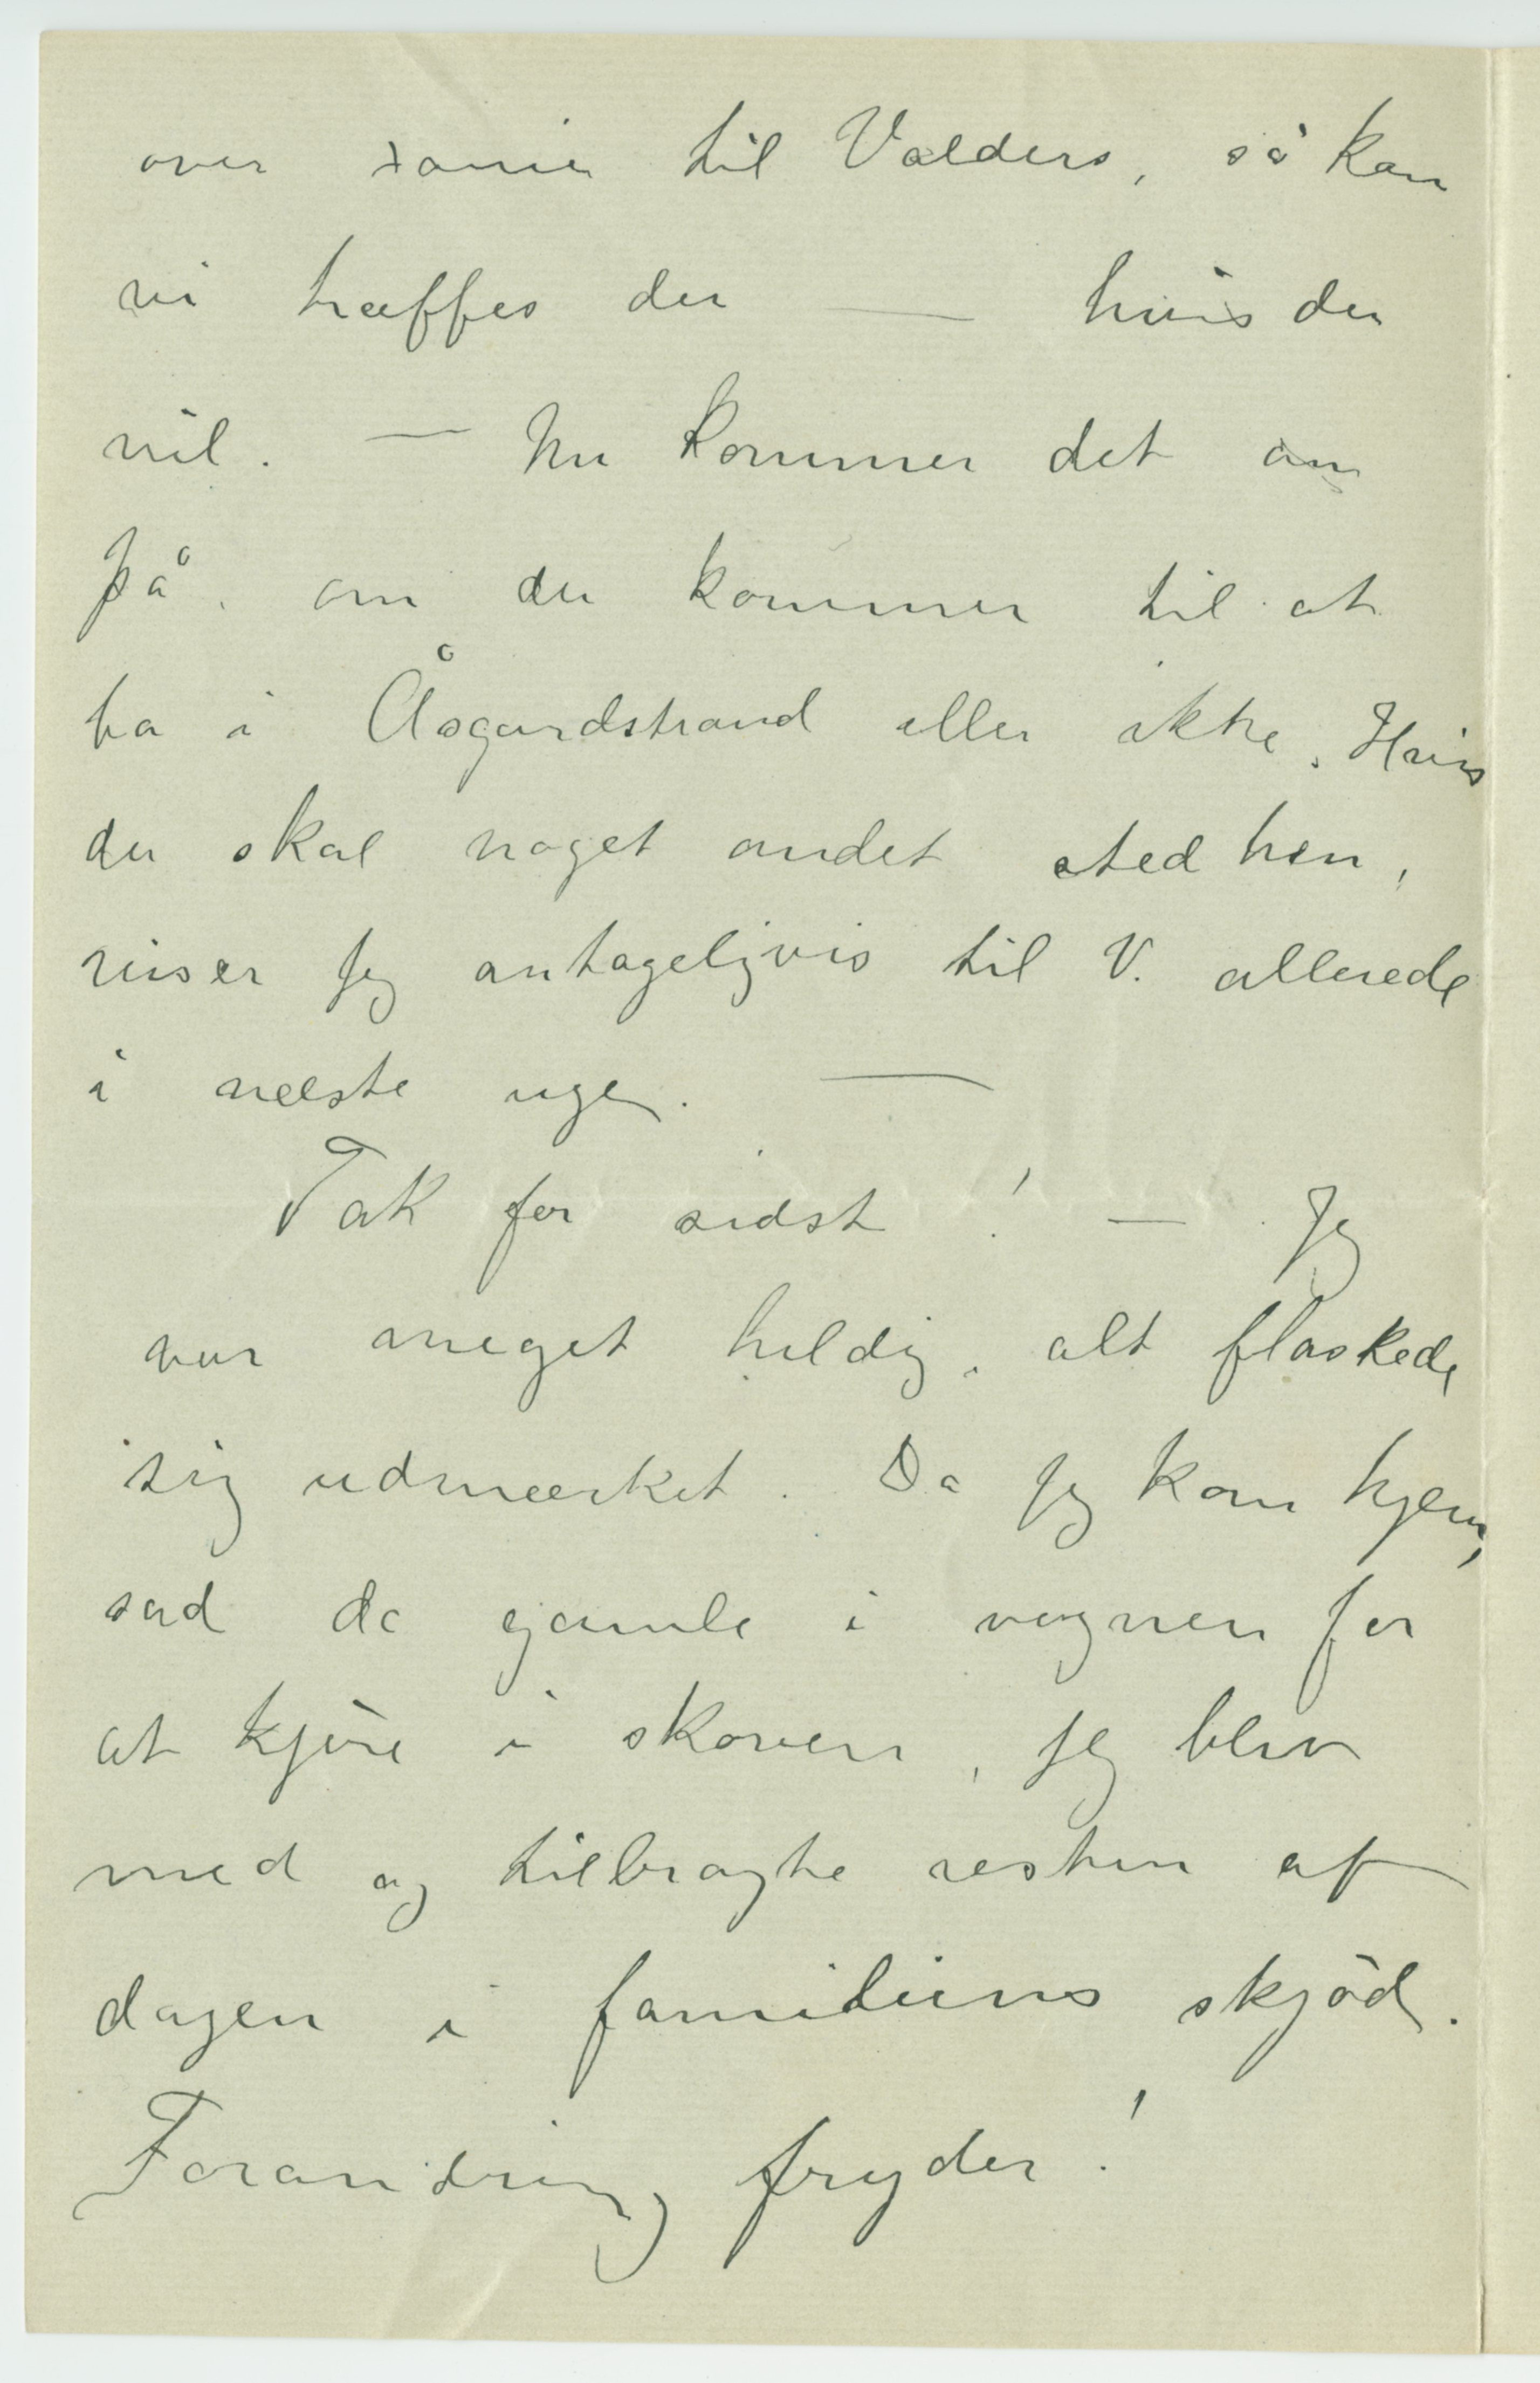 over           til Valders, så kan
vi træffes der — hvis du
vil. — Nu kommer det an
på, om du kommer til at
bo i Åsgardstrand eller ikke. Hvis
du skal noget andet sted hen,
reiser jeg antageligvis til V. allerede
i næste uge. —
Tak for sidst! — Jeg
var meget heldig, alt flaskede
sig udmærket. Da jeg kom hjem,
sad de gamle i vognen for
at kjöre i skoven, jeg blev
med og tilbragte resten af
dagen i familiens skjöd.
Forandring fryder!